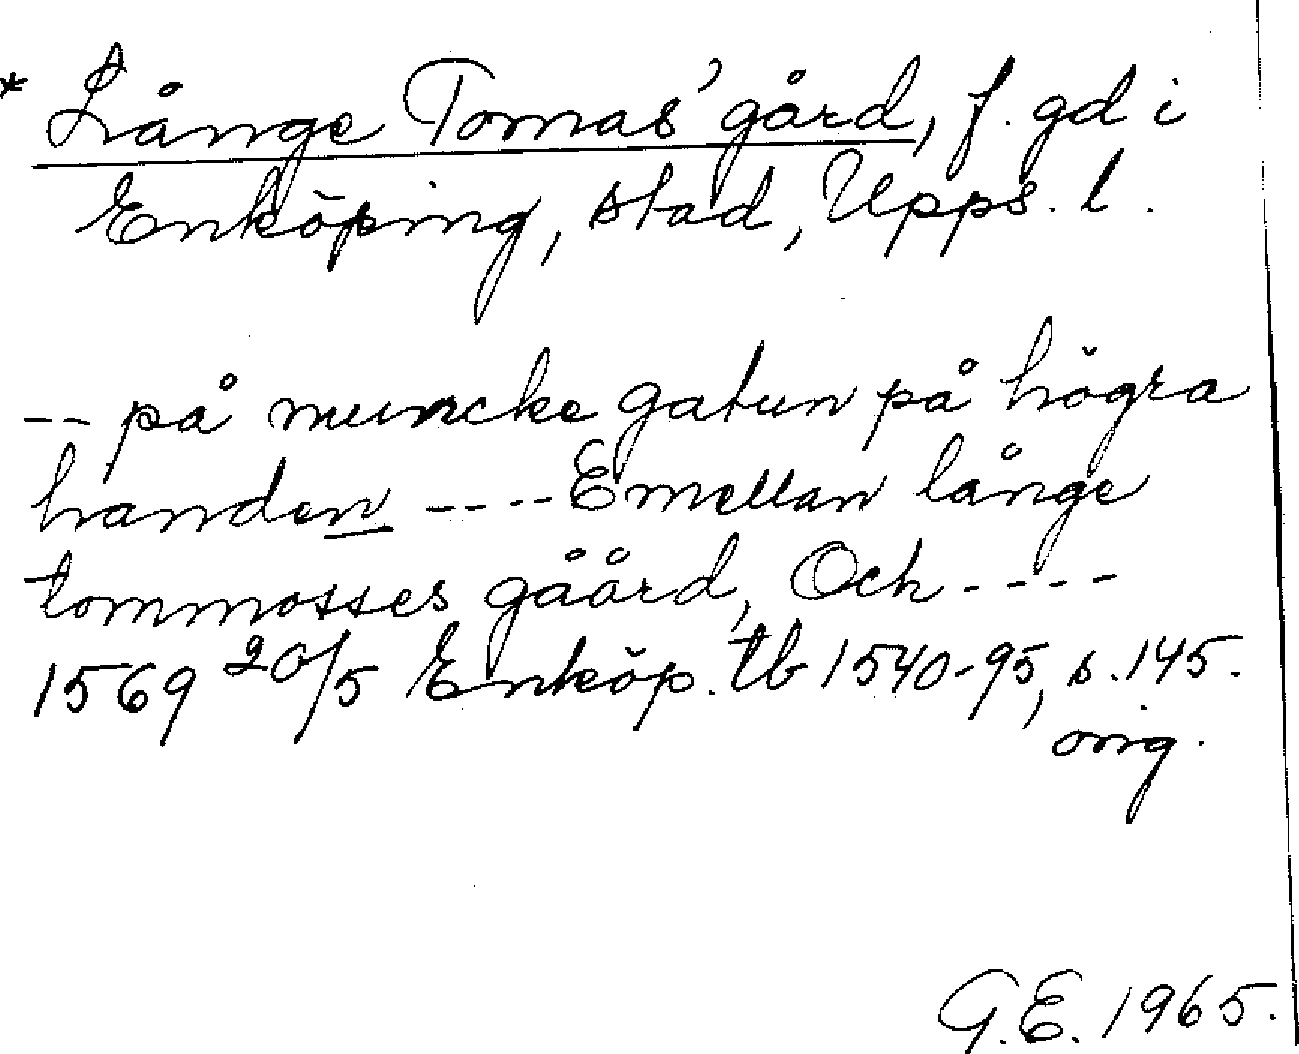 * Långe Tomas' gård, f. gd i
Enköping, stad, Upps. l.
-- på muncke gatun på högra
handen ---- Emellan långe
tommosses gåård, Och ----
1569 20/5 Enköp. tb 1540-95, s. 145.
orig.
G.E. 1965.